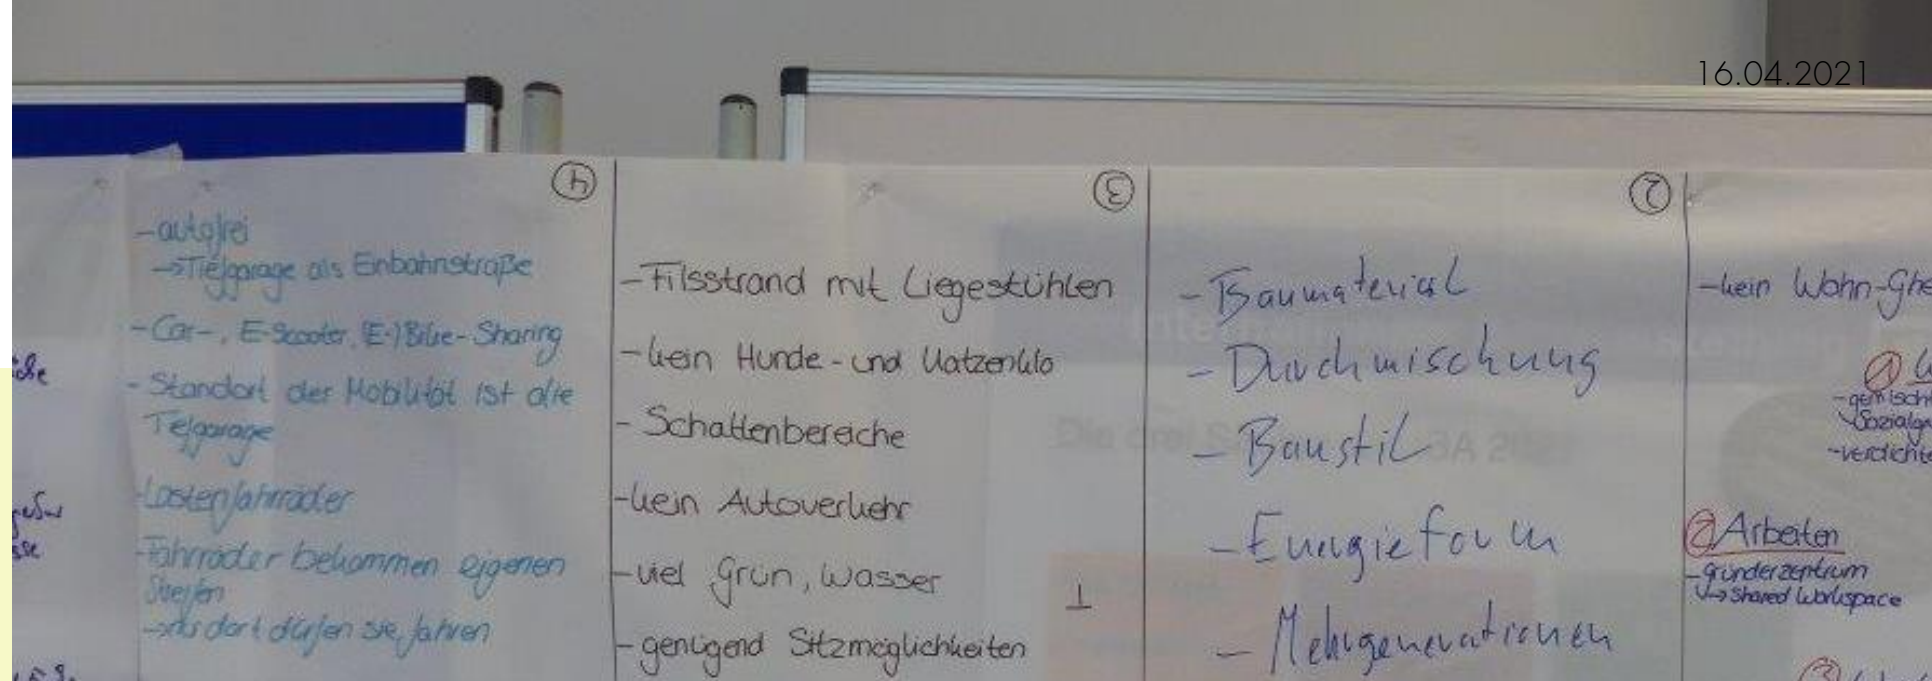 16.04.2021
4
-autofrei
→Tiefgarage als Einbahnstraße
-Car-, E-Scooter, (E-)Bike-Sharing
- Standort der Mobilität ist die
Tiefgarage
-Lastenfahrräder
-Fahrräder bekommen eigenen
Streifen
→nur dort dürfen sie fahren
3
-Filsstrand mit Liegestühlen
-kein Hunde-und Katzenklo
- Schattenbereiche
-kein Autoverkehr
-viel Grün, Wasser
-genügend Sitzmöglichkeiten
2
- Baumaterial
- Durchmischung
- Baustil
- Energieform
- Mehrgenerationen
-kein Wohn-Ghe
1
-gemischt
-verdichte
2 Arbeiten
-Gründerzentrum
↳ Shared Workspace
3